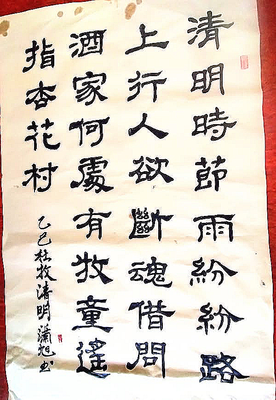 清明時節雨紛紛路
上行人欲斷魂借問
酒家何處有牧童遙
指杏花村
乙巳杜牧清明瀟旭书